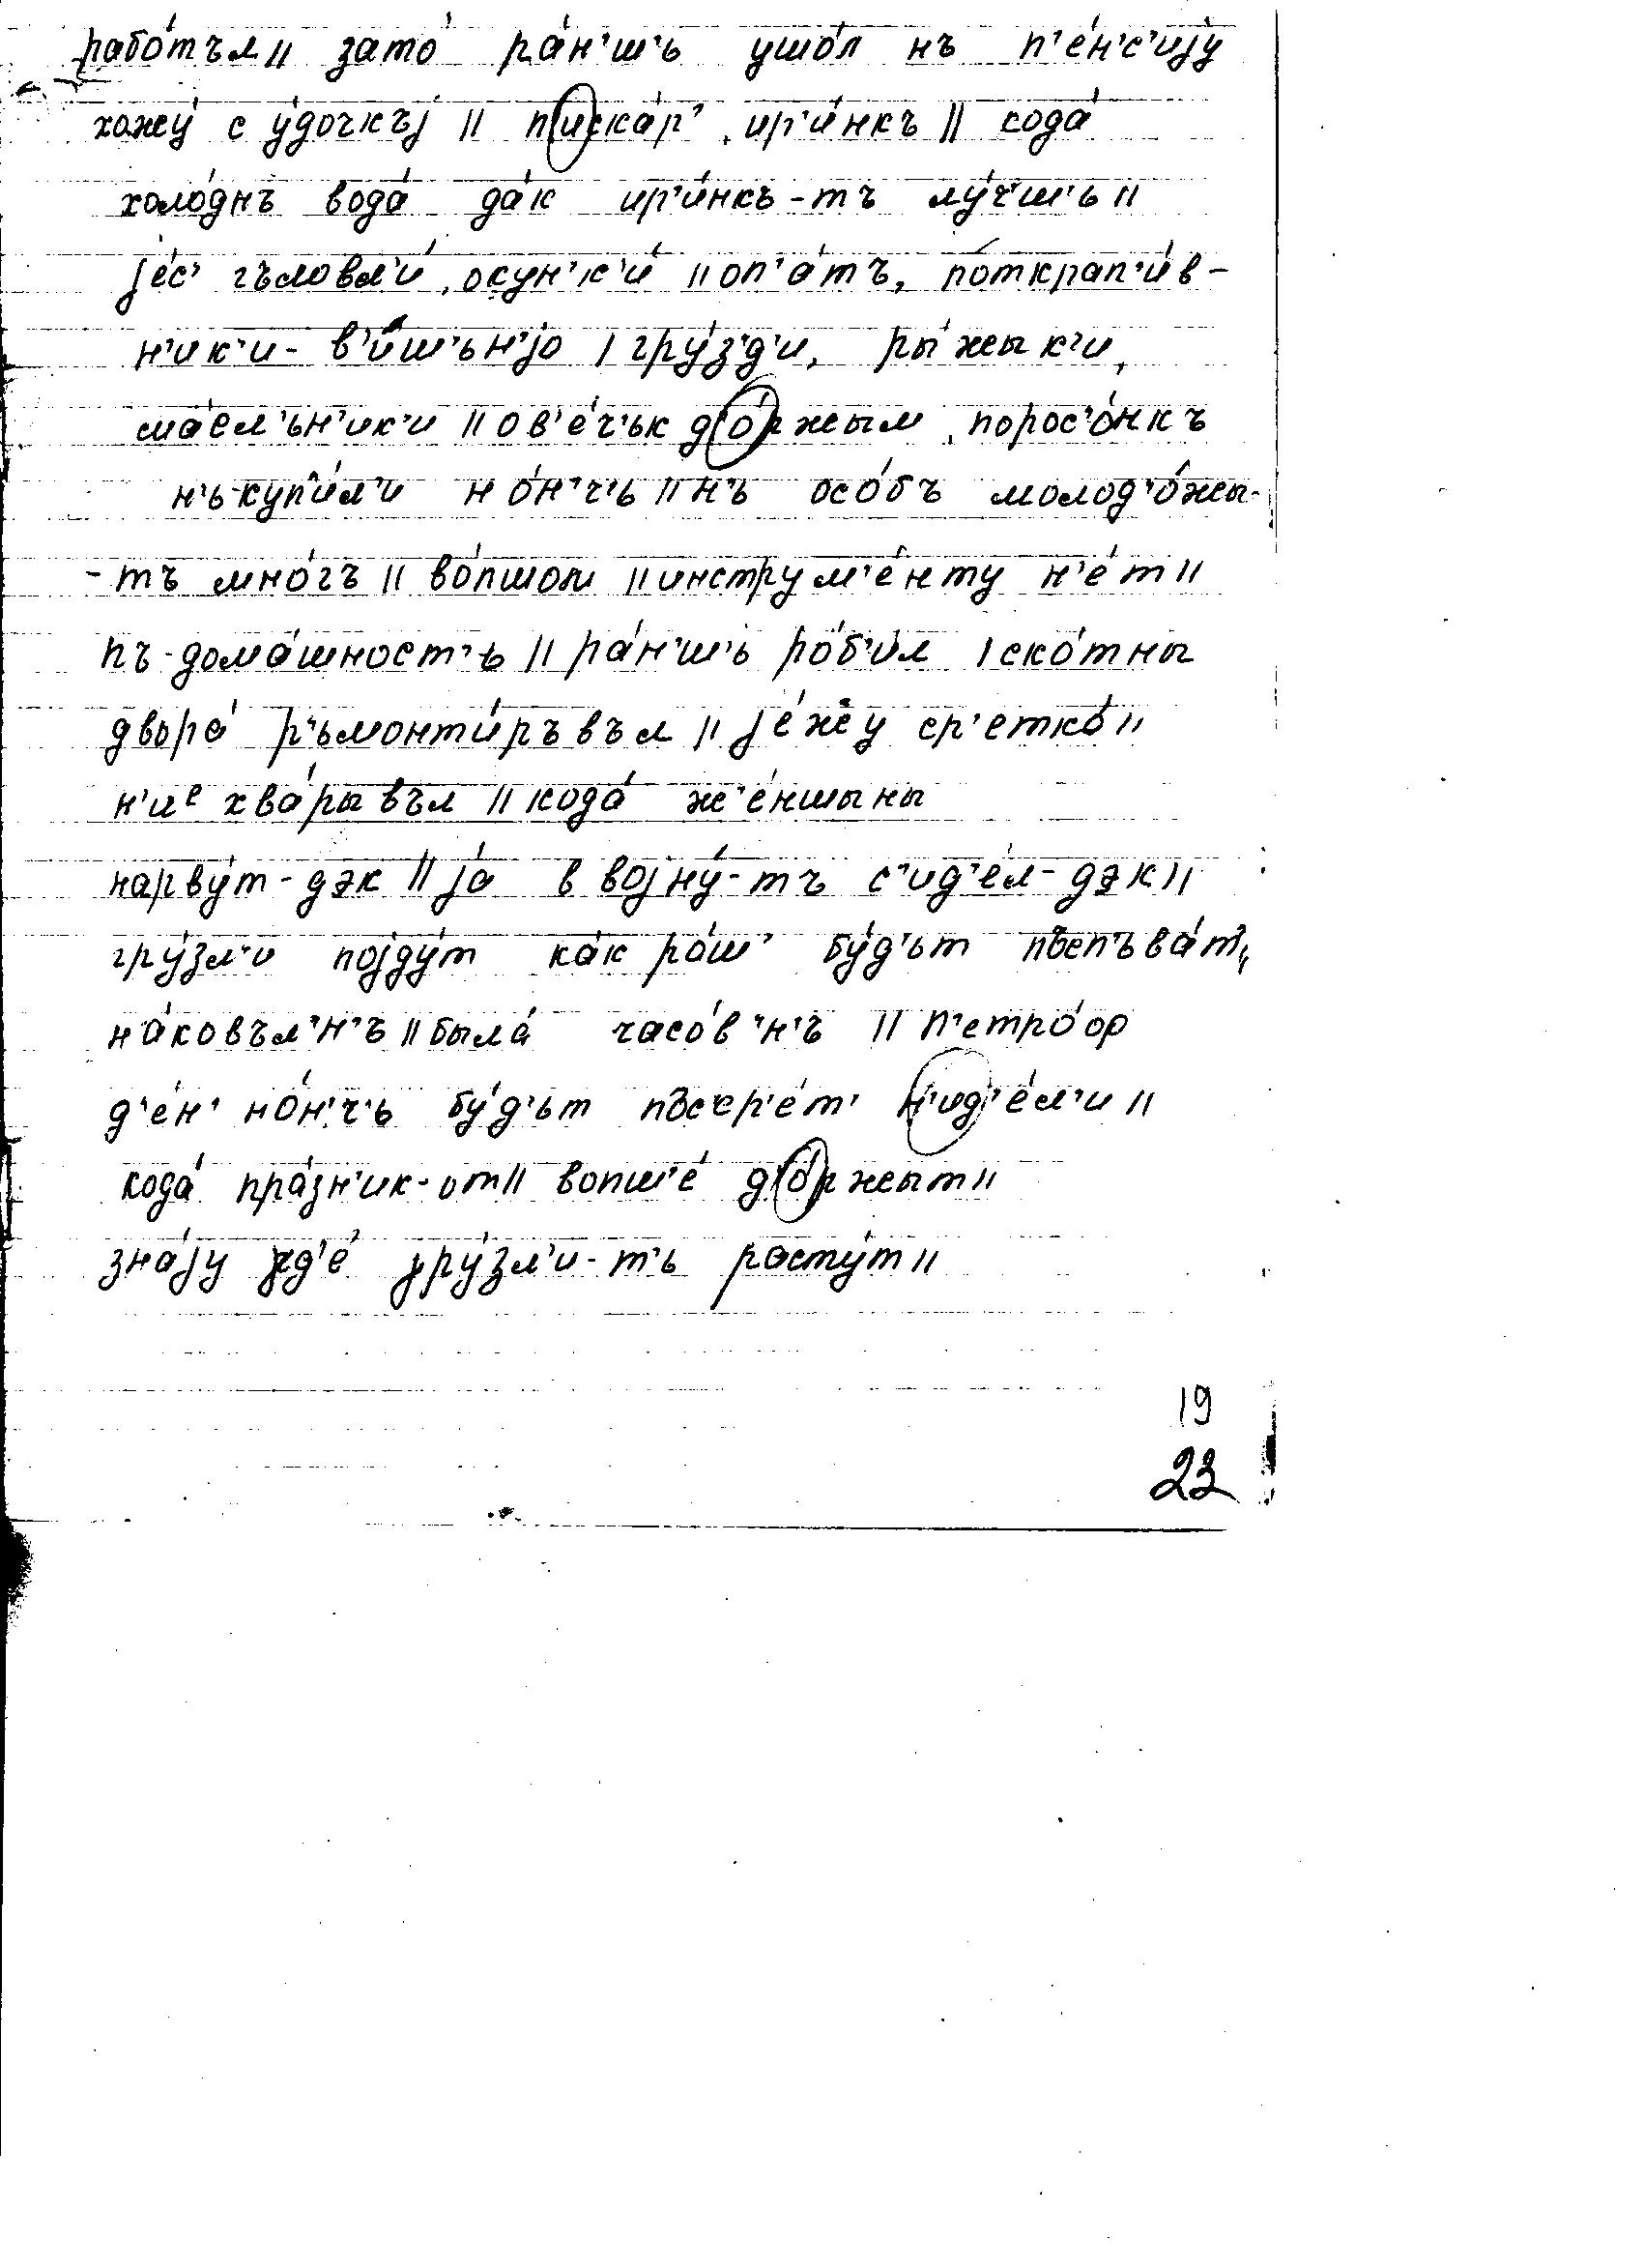 рабо́тъл || зато́ ра́н'ш'ь ушо́л нъ п'е́н'с'иjу
хожу́ с у́дочкъj || писка́р', ир'и́нкъ || кода́
холо́днъ вода́ да́к ир'и́нкъ-тъ лу́ч'ш'ь ||
jе́с' гъловл'и́, окун'к'и́ || оп'а́тъ, по́ткрап'и́в-
н'ик'и - в'и́ш'ьн'jо | гру́з'д'и, ры́жык'и,
ма́сл'ьн'ик'и || ов'е́ч'ьк д'о́ржым, порос'о́нкъ
н'ь-куп'и́л'и но́н'ч'ь || н'ь осо́бъ молод'о́жы-
-тъ мно́гъ || во́пшом || инструм'е́нту н'е́т ||
пъ-дома́шност'ь || ра́н'ш'ь ро́б'ил | ско́тны
двора́ р'ьмонти́ръвъл || jе́жжу ср'етко́ ||
н'ие хва́рывъл || кода́ ж'е́ншыны
нарву́т-дэк || jа́ в воjну́-тъ с'ид'е́л-дэк ||
гру́зл'и поjду́т ка́к ро́ш' бу́д'ьт пъспъва́т' ||
на́ковъл'н'ъ || была́ часо́в'н'ъ || П'етро́ор
д'е́н' но́н'ч'ь бу́д'ьт пъср'е́т' н'ид'е́л'и ||
кода́ пра́зн'ик-от || вопш'е́ д'о́ржыт ||
зна́jу γд'е́ γру́зл'и-т'ь расту́т ||
19
23